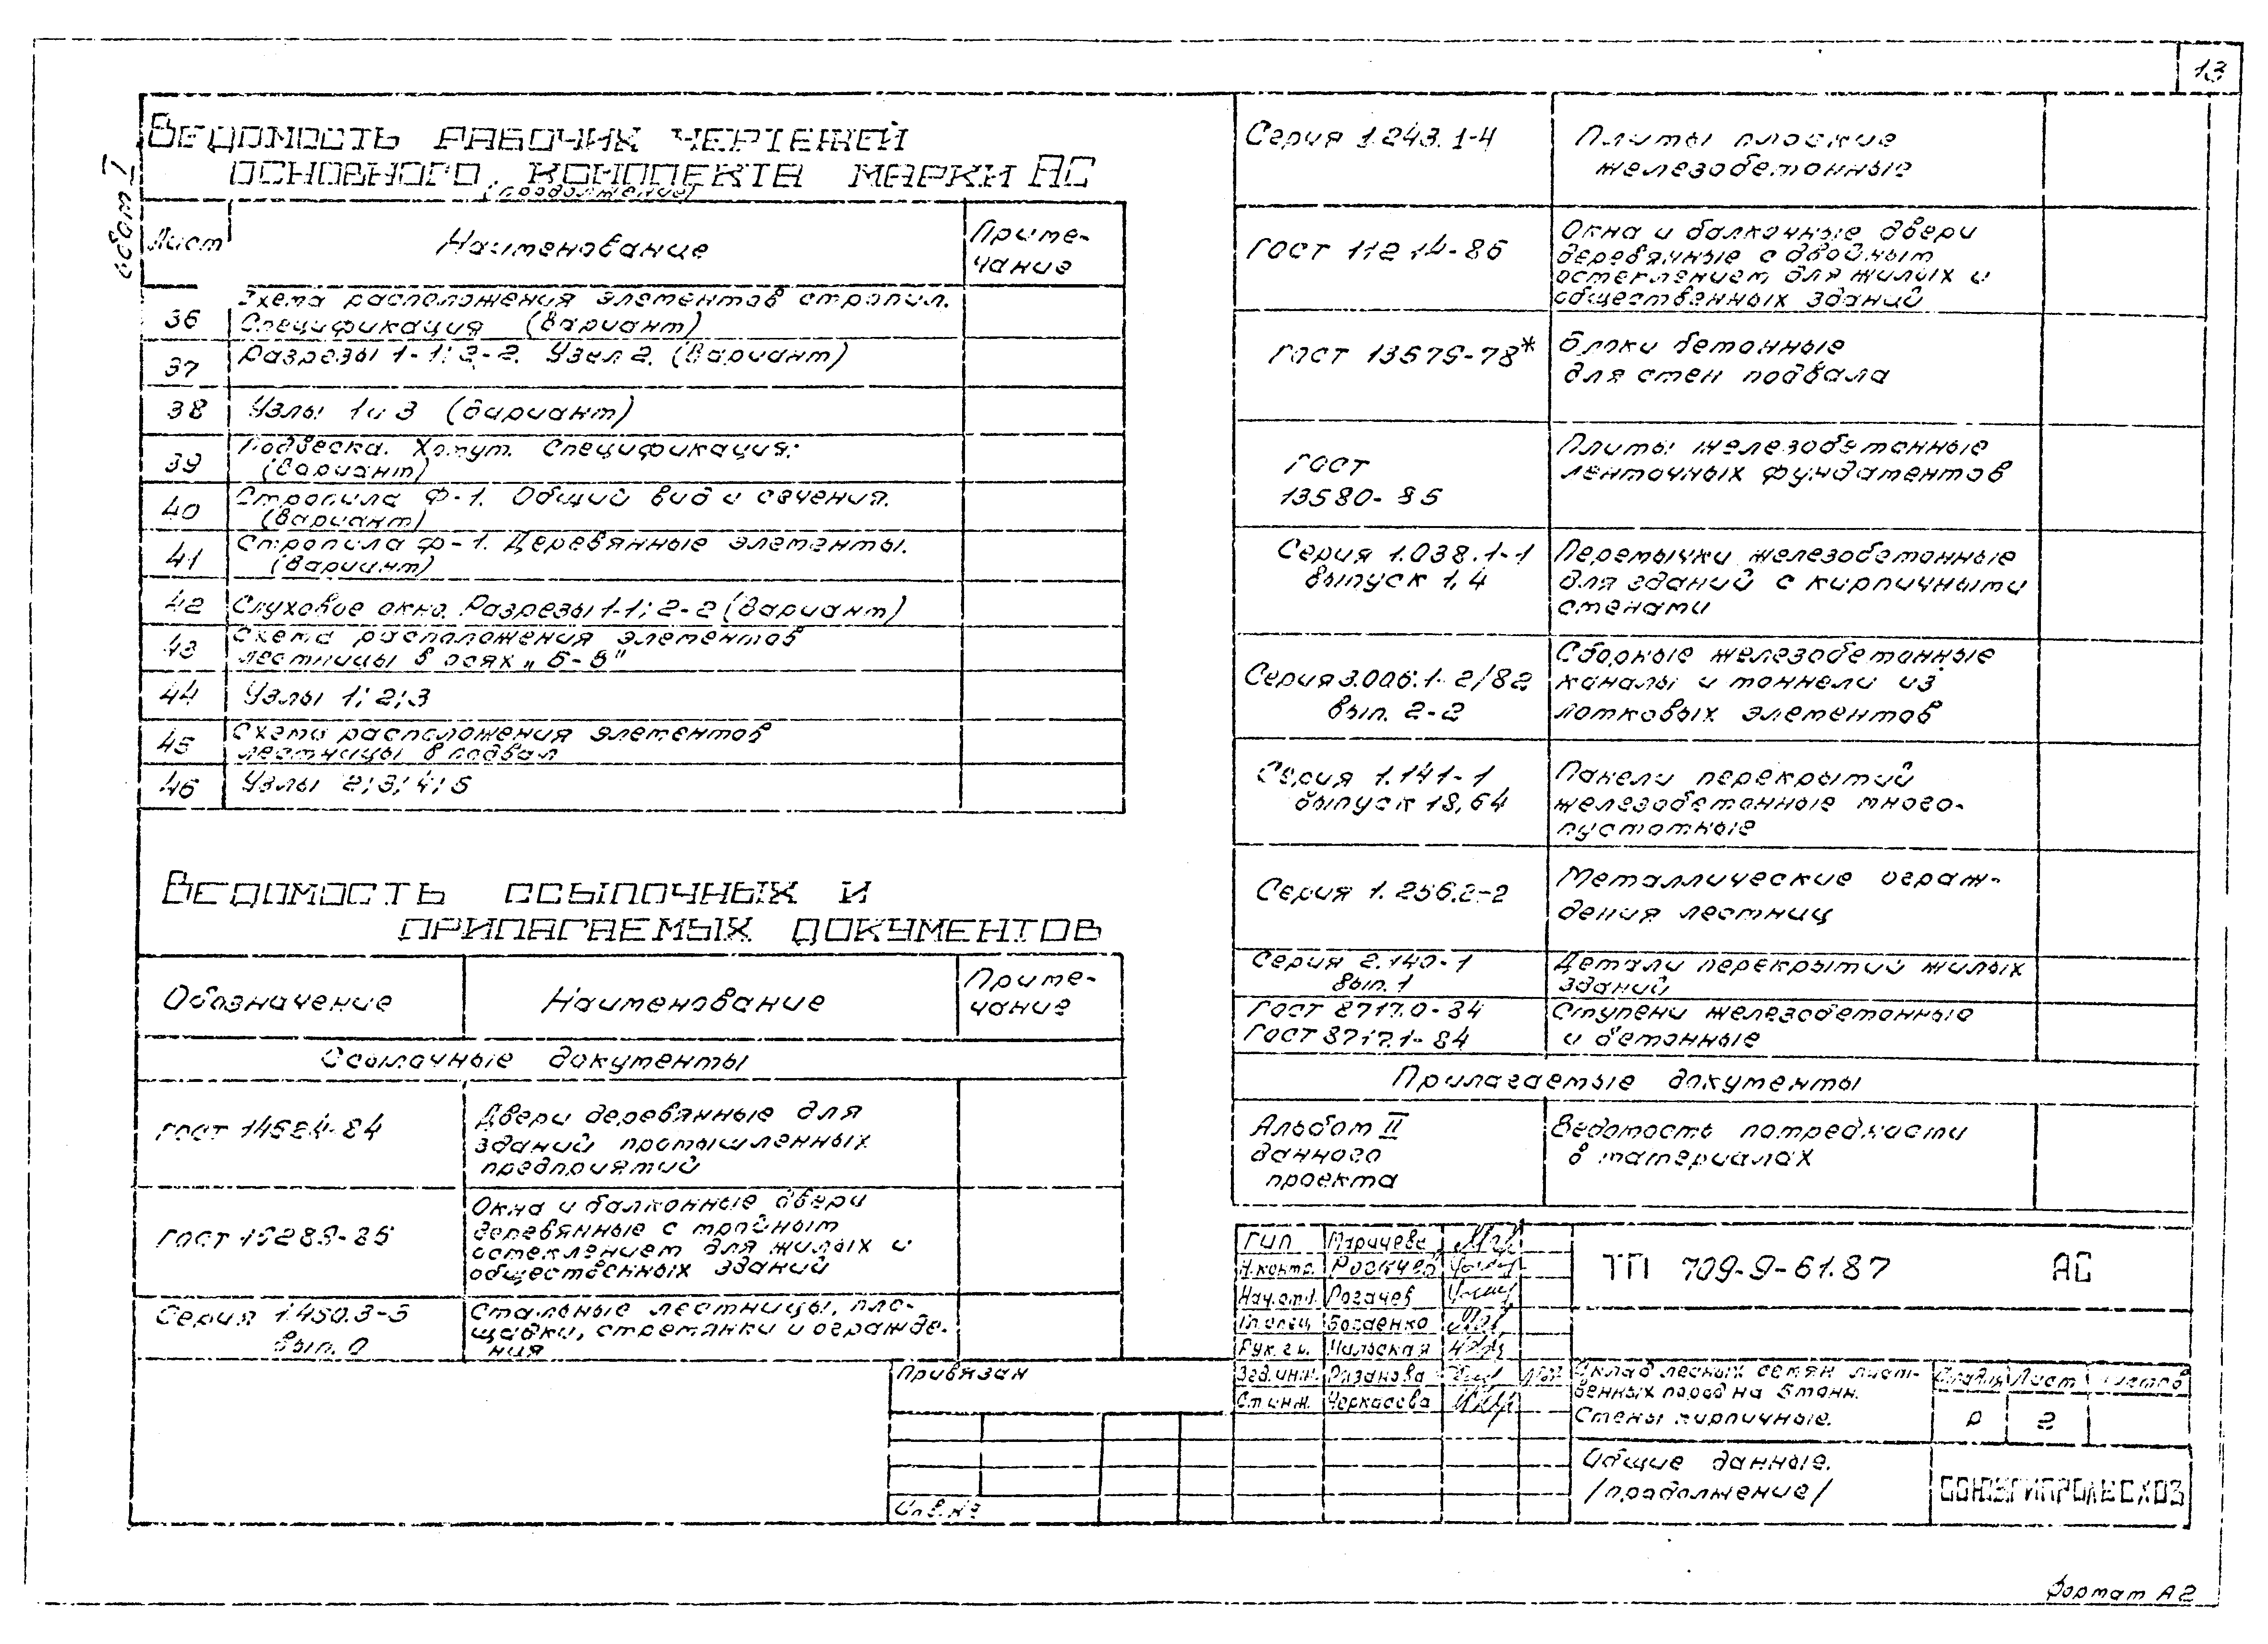 13
Ведомость рабочих чертежей
основного комплекта марки АС
(продолжение)
Лист
Наименование
Приме-
чание
36
Схема расположения элементов стропил.
Спецификация (Вариант)
37
Разрезы 1-1; 2-2. Узел 2. (Вариант)
38
Узлы 1 и 3 (вариант)
39
Подвеска. Хомут. Спецификация.
(Вариант)
40
Стропила Ф-1. Общий вид и сечения.
(Вариант)
41
Стропила Ф-1. Деревянные элементы.
(Вариант)
42
Слуховое окно. Разрезы 1-1; 2-2 (Вариант)
43
Схема расположения элементов
лестницы в осях
44
Узлы 1; 2; 3
45
Схема расположения элементов
лестницы в подвал
46
Узлы 2; 3; 4; 5
Ведомость ссылочных и
прилагаемых документов
Обозначение
Наименование
Приме-
чание
Ссылочные документы
ГОСТ
Двери деревянные для
зданий промышленных
предприятий
ГОСТ
Окна и балконные двери
деревянные с тройным
остеклением для жилых и
общественных зданий
Серия 1.450.3-3
вып. 0
Стальные лестницы, пло-
щадки, стремянки и огражде-
ния
Серия 1.243.1-4
Плиты плоские
железобетонные
ГОСТ 11214-86
Окна и балконные двери
деревянные с двойным
остеклением для жилых и
общественных зданий
ГОСТ 13579-78*
Блоки бетонные
для стен подвала
ГОСТ
13580-85
Плиты железобетонные
ленточных фундаментов
Серия 1.038.1-1
выпуск 1,4
Перемычки железобетонные
для зданий с кирпичными
стенами
Серия 3.006.1-2/82
вып. 2-2
Сборные железобетонные
каналы и тоннели из
лотковых элементов
Серия 1.141-1
выпуск 18,64
Панели перекрытий
железобетонные много-
пустотные
Серия 1.256.2-2
Металлические ограж-
дения лестниц
Серия 2.140-1
Вып. 1
Детали перекрытий жилых
зданий
ГОСТ 8717.0-84
ГОСТ 8717.1-84
Ступени железобетонные
и бетонные
Прилагаемые документы
Альбом II
данного
проекта
Ведомость потребности
в материалах
ГИП
Н.контр.
Нач.отд. Рогачев
Гл.спец. Богденко
Рук.гр.
Вед.инж. Рязанова
Ст.инж. Черкасова
ТП 709-9-61.87
АС
Склад лесных семян лист-
венных пород на 5 тонн.
Стены кирпичные.
Стадия Лист Листов
Р 2
Общие данные.
/продолжение/
СОЮЗГИПРОЛЕСХОЗ
Привязан
Инв.№
Формат А2